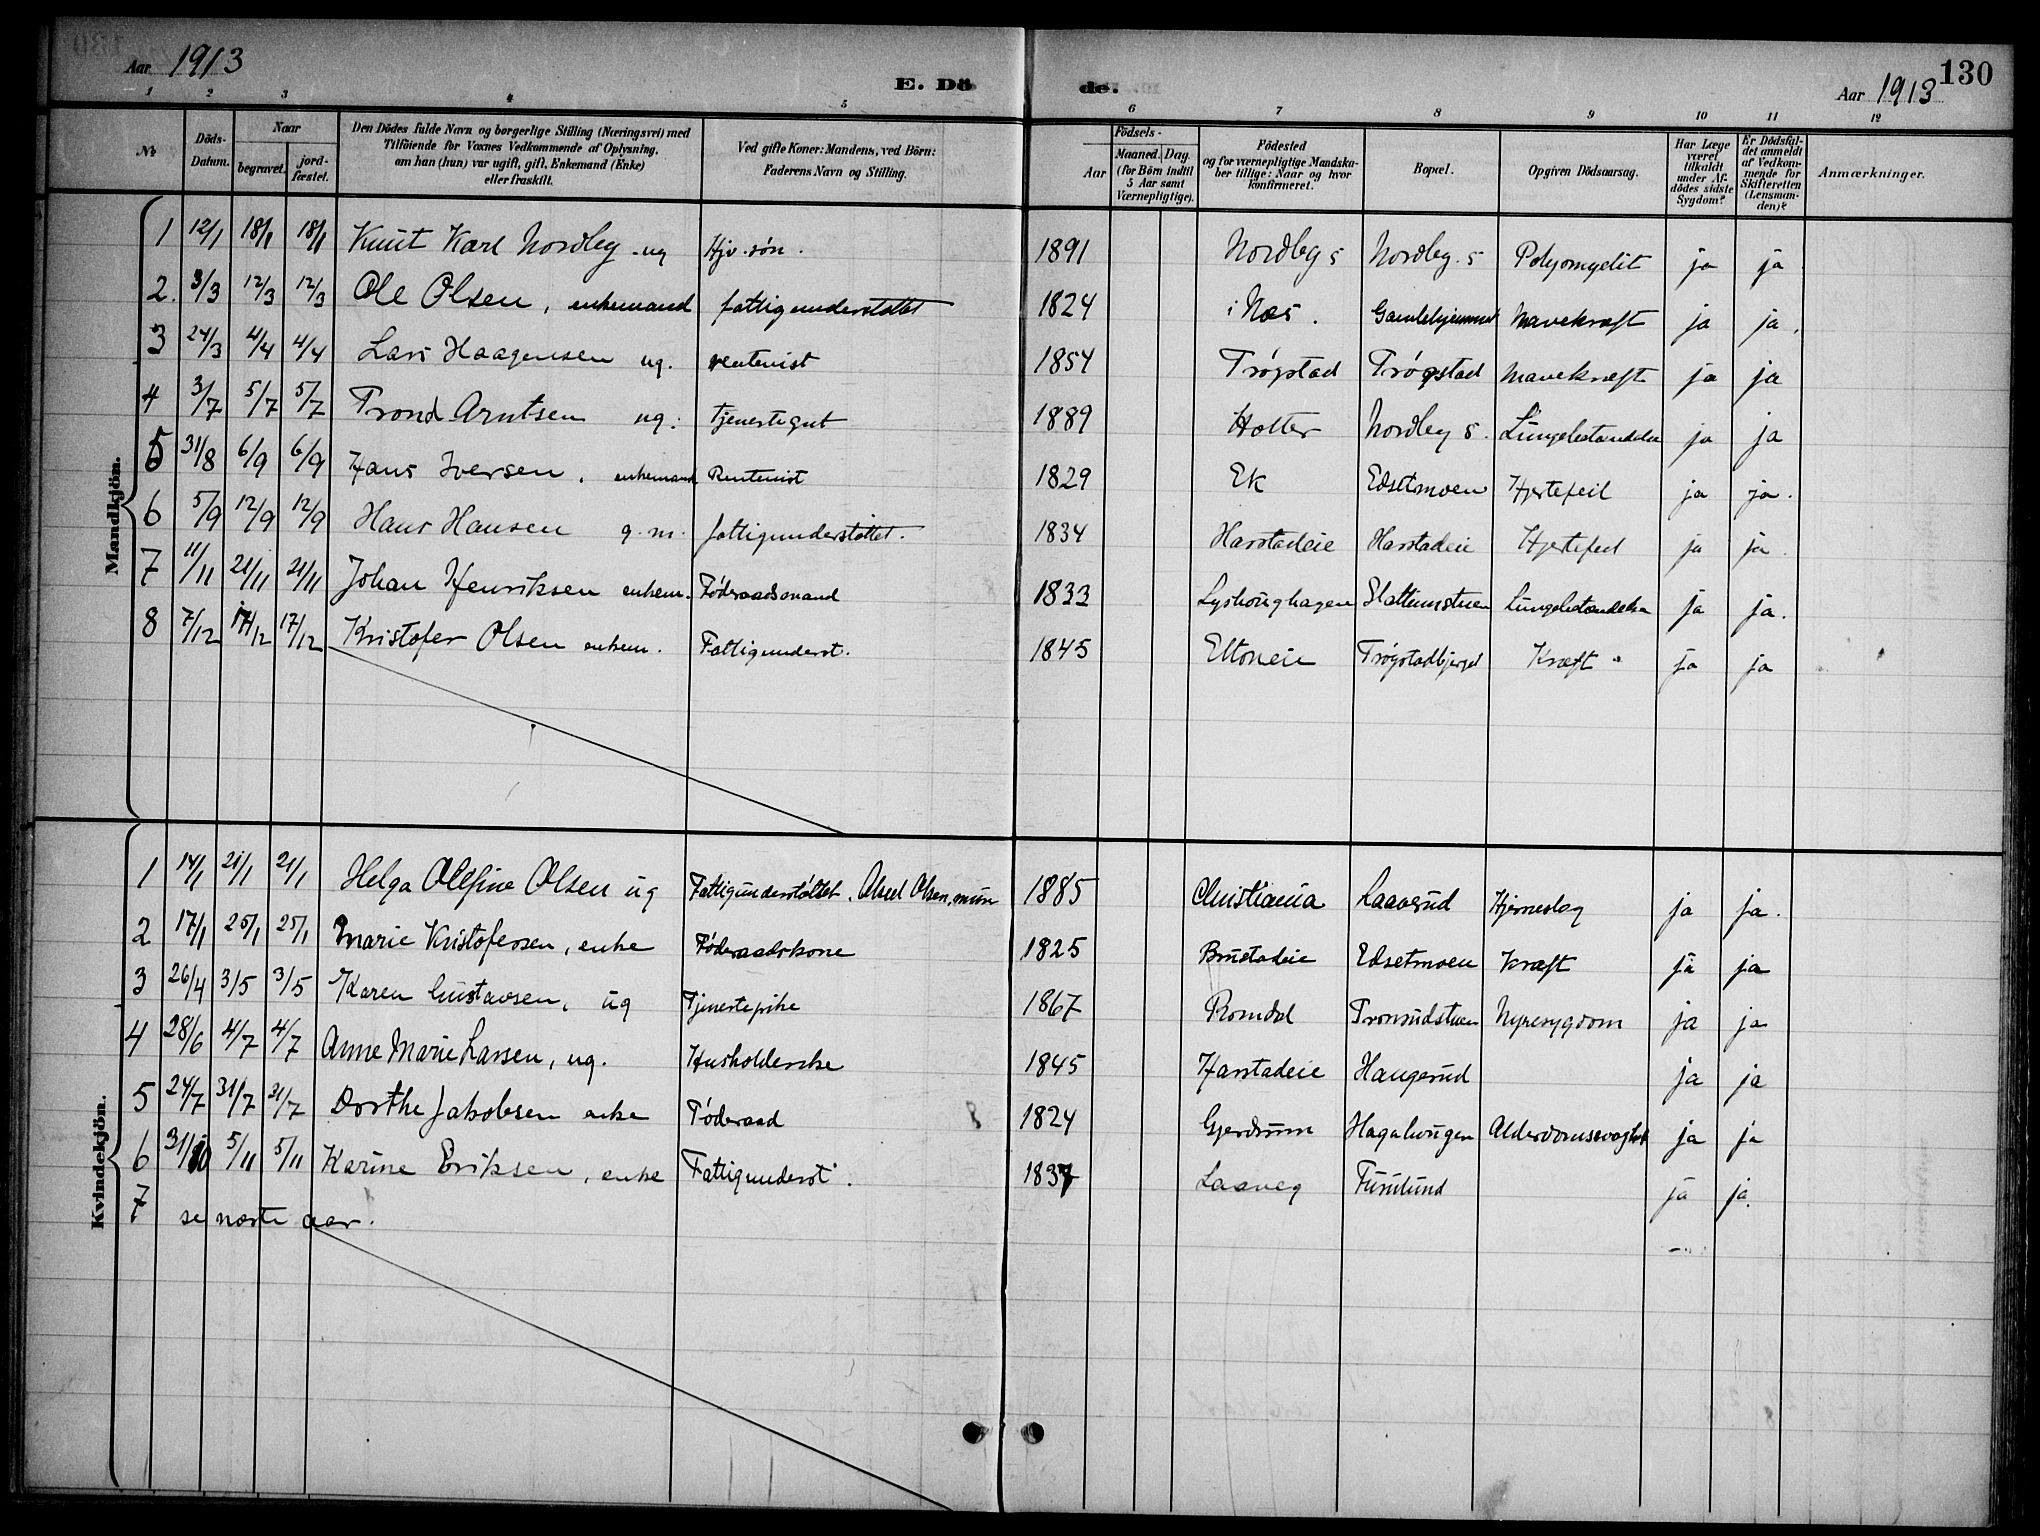 Aar 1913
E. Dö de.
Aar 1913 130
1 2 3 4 5 6 7 8 9 10 11 12
No Döds-Datum. Naar begravet. jord-fæstet. Den Dödes fulde Navn og borgerlige Stilling (Næringsvei) med Tilföiende for Voxnes Vedkommende af Oplysning, om han (hun) var ugift, gift, Enkemand (Enke) eller fraskilt. Ved gifte Koner: Mandens, ved Börn: Faderens Navn og Stilling. Födsels- Aar Maaned. Dag. (for Börn indtil 5 Aar samt Værnepligtige). Födested og for værnepligtige Mandskaber tillige: Naar og hvor konfirmeret. Bopæl. Opgiven Dödsaarsag. Har Læge været tilkaldt under Afdödes sidste Sygdom? Er Dödsfaldet anmeldt af Vedkommende for Skifteretten (Lensmanden)? Anmærkninger.
Mandkjön.
1 12/1 18/1 18/1 Knut Karl Nordby ug Hjv. søn. 1891 Nordby s Nordby s Polyomyelit ja ja
2. 3/3 12/3 12/3 Ole Olsen, enkemand fattigunderstøttet 1824 i Næs. Gamlehjemmet Mavekræft ja ja.
3 24/3 4/4 4/4 Lars Haagensen ug. rentenist 1854 Trøgstad Trøgstad Mavekræft ja ja
4 3/7 5/7 5/7 Trond Arntsen ug. tjenestegut 1889 Holter Nordby s. Lungebetændelse ja ja
5 31/8 6/9 6/9 Hans Iversen, enkemand Rentenist 1829 Ek Edsetmoen Hjertefeil ja ja.
6 5/9 12/9 12/9 Hans Hansen g.m. fattigunderstøttet. 1834 Harstadeie Harstadeie Hjertefeil ja ja.
7 11/11 21/11 21/11 Johan Henriksen enkem. Føderaadsmand 1833 Lyshoughagen Slattumstuen Lungebetændelse ja ja.
8 7/12 17/12 17/12 Kristofer Olsen enkem. Fattigunderst. 1845 Eltoneie Trøgstadbjerget Kræft ja ja
Kvindekjön.
1 14/1 21/1 21/1 Helga Olefine Olsen ug Fattigunderstøttet. Olsen, 1885 Christiania Laaverud Hjerneslag ja ja.
2 17/1 25/1 25/1 Marie Kristofersen, enke Føderaadskone 1825 Brustadeie Edsetmoen Kræft ja ja
3 26/4 3/5 3/5 Karen Gustavsen, ug Tjenestepike 1867 Romdal Tronsudstuen Nyresygdom ja ja
4 28/6 4/7 4/7 Anne Marie Larsen, ug. Husholderske 1845 Harstadeie Haugerud ja ja
5 24/7 31/7 31/7 Dorthe Jakobsen enke Føderaad 1824 Gjerdrum Hagahaugen Alderdomssvaghet ja ja
6 31/10 5/11 5/11 Karine Eriksen, enke Fattigunderst. 1837 Laaveg Furulund ja ja.
7 se næste aar.